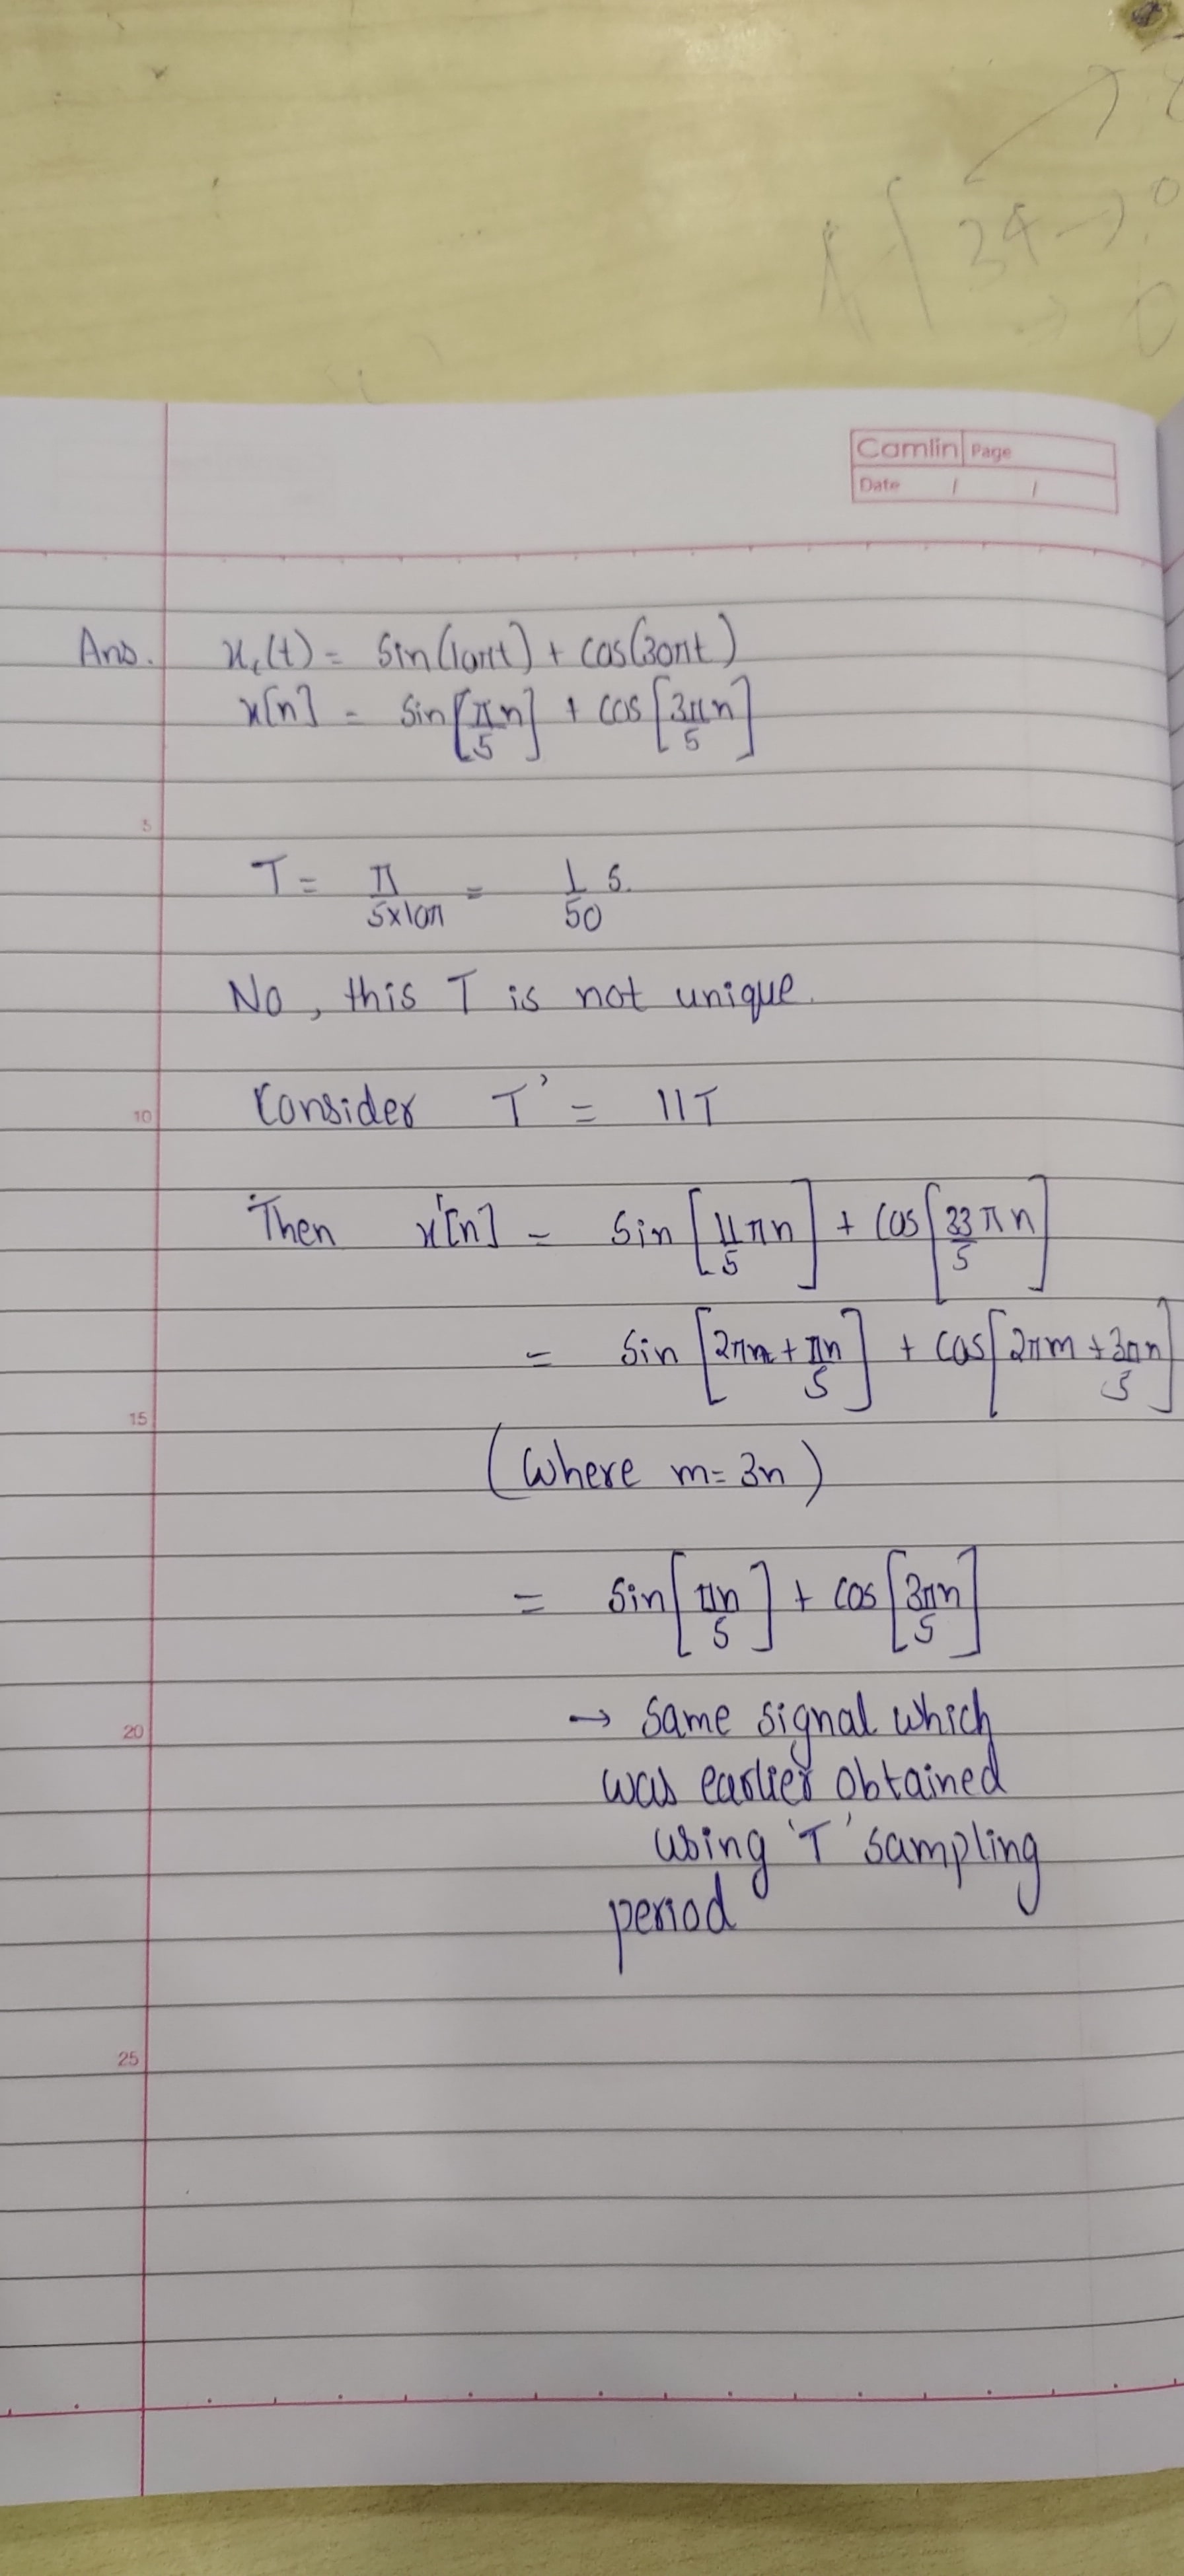 Camlin Page
Date / /
Ans. x_c(t) = sin(10πt) + cos(30πt)
x[n] = sin[π/5 n] + cos[3π/5 n]
5
T = π/(5×10π) = 1/50 s.
No, this T is not unique.
10
Consider T' = 11T
Then x'[n] = sin[11/5 πn] + cos[33/5 πn]
= sin[2πn + πn/5] + cos[2πm + 3πn/5]
15
(Where m = 3n)
= sin[πn/5] + cos[3πn/5]
20
→ Same signal which
was earlier obtained
using 'T' sampling
period
25
34 →